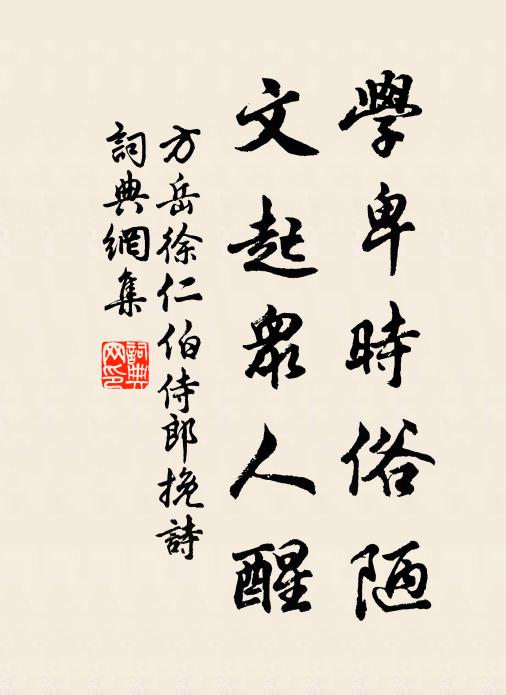 學卑時俗陋
文起眾人醒
方岳徐仁伯侍郎挽詩
詞典網集
詞典網印